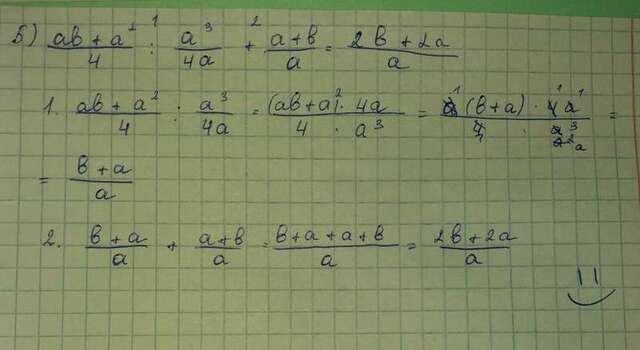 Б) (ab + a²)/4 :¹ a³/4a +² (a + b)/a = (2b + 2a)/a
1. (ab + a²)/4 : a³/4a = (ab + a²) · 4a / 4 · a³ = a¹(b + a) · 4¹a¹ / 4₁ · a³ a² a =
= (b + a)/a
2. (b + a)/a + (a + b)/a = (b + a + a + b)/a = (2b + 2a)/a